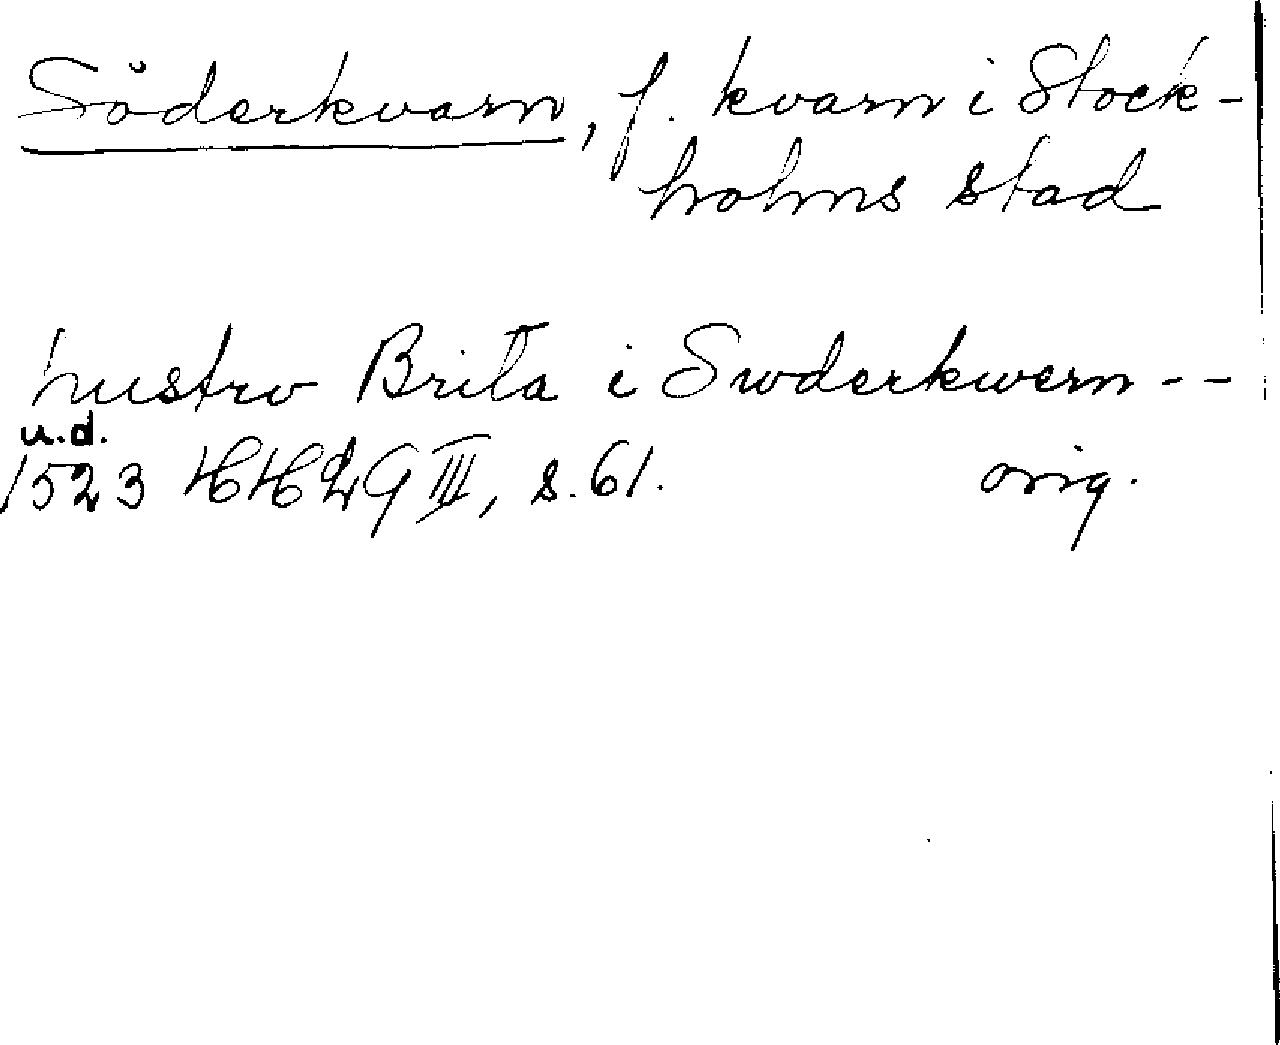 Söderkvarn, f. kvarn i Stock-
holms stad
hustro Brita i Swderkwern - -
u.d.
1523 HH 29 III, s. 61. orig.